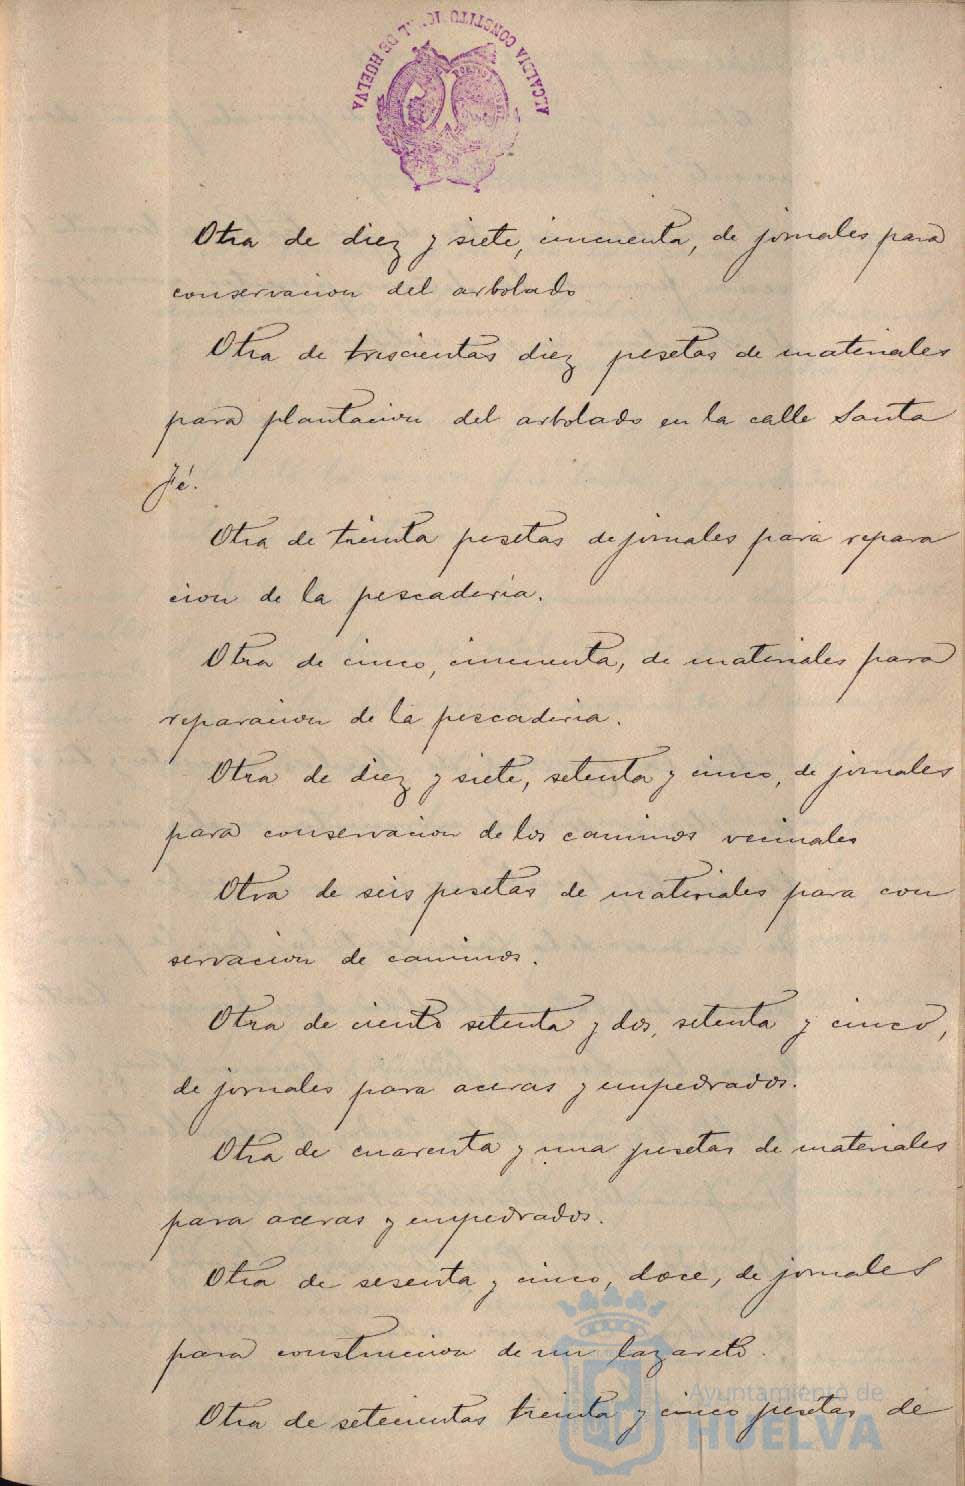 ALCALDIA CONSTITUCIONAL DE HUELVA
Otra de diez y siete, cincuenta, de jornales para
conservacion del arbolado
Otra de trescientas diez pesetas de materiales
para plantacion del arbolado en la calle Santa
Fé.
Otra de treinta pesetas de jornales para repara
cion de la pescaderia.
Otra de cinco, cincuenta, de materiales para
reparacion de la pescaderia.
Otra de diez y siete, setenta y cinco, de jornales
para conservacion de los caminos vecinales
Otra de seis pesetas de materiales para con
servacion de caminos.
Otra de ciento setenta y dos, setenta y cinco,
de jornales para aceras y empedrados.
Otra de cuarenta y una pesetas de materiales
para aceras y empedrados.
Otra de sesenta y cinco, doce, de jornales
para construccion de un lazareto.
Otra de setecientas treinta y cinco pesetas de
Ayuntamiento de
HUELVA